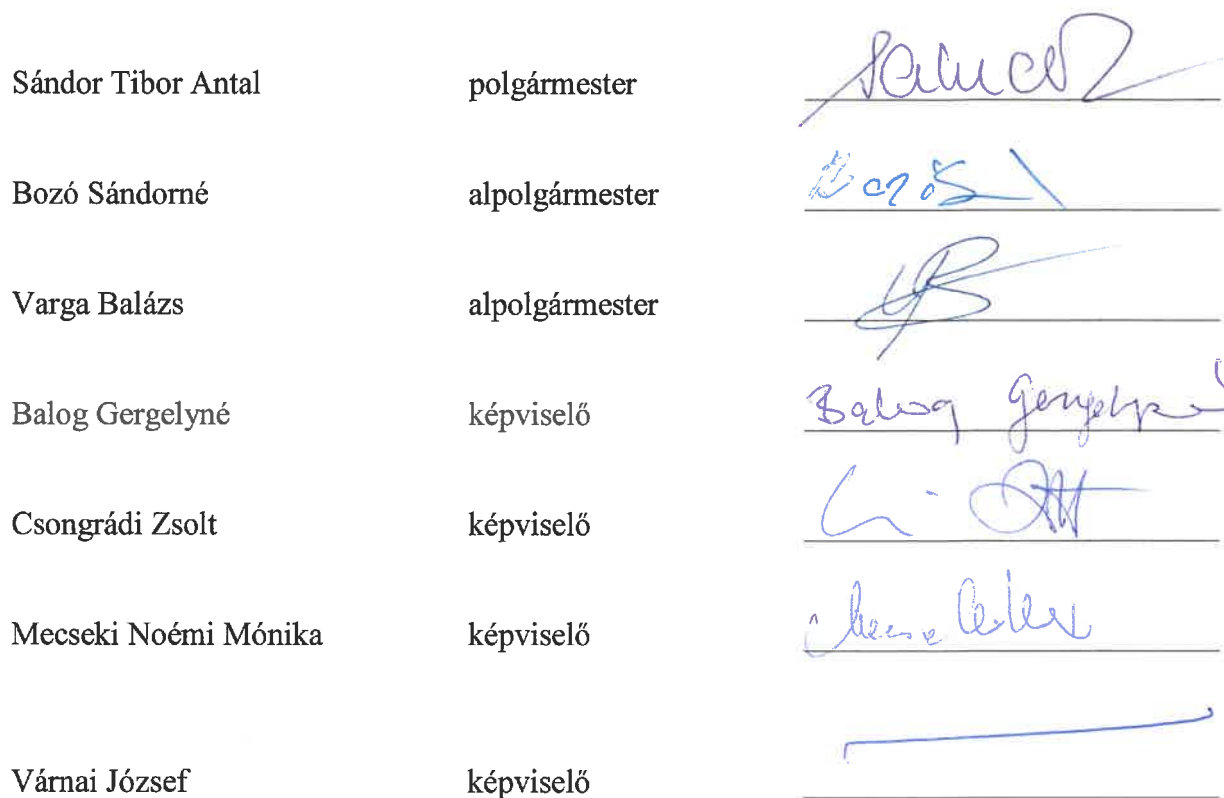 Sándor Tibor Antal polgármester
Bozó Sándorné alpolgármester
Varga Balázs alpolgármester
Balog Gergelyné képviselő Balog Gergelyné
Csongrádi Zsolt képviselő
Mecseki Noémi Mónika képviselő
Várnai József képviselő